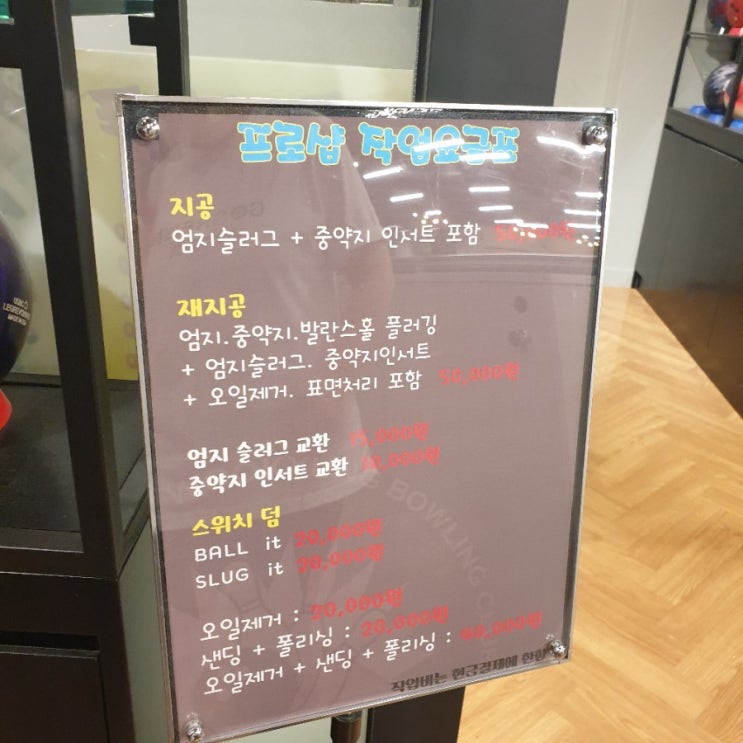 프로샵 작업요금표
지공
엄지슬러그 + 중약지 인서트 포함
재지공
엄지.중약지.발란스홀 플러깅
+ 엄지슬러그. 중약지인서트
+ 오일제거. 표면처리 포함 50,000원
엄지 슬러그 교환 15,000원
중약지 인서트 교환
스위치 덤
BALL it 20,000원
SLUG it 20,000원
오일제거 : 20,000원
샌딩 + 폴리싱 : 20,000원
오일제거 + 샌딩 + 폴리싱 :
작업비는 현금결제에 한함
BOWLING